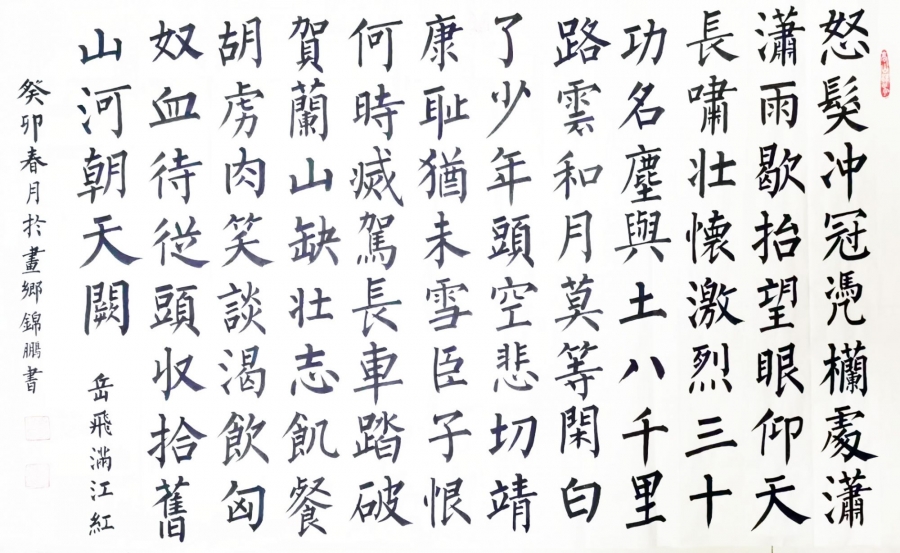 怒髮冲冠凴欄處瀟
瀟雨歇抬望眼仰天
長嘯壯懷激烈三十
功名塵與土八千里
路雲和月莫等閑白
了少年頭空悲切靖
康耻猶未雪臣子恨
何時滅駕長車踏破
賀蘭山缺壯志飢餐
胡虜肉笑談渴飲匈
奴血待從頭収拾舊
山河朝天闕
岳飛滿江紅
癸卯春月於畫鄉錦鵬書